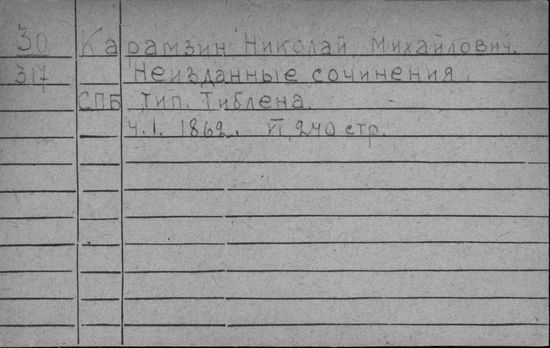 30 Карамзин Николай Михайлович.
317 Неизданные сочинения.
СПБ тип. Тиблена.
Ч.I. 1862. VI, 240 стр.